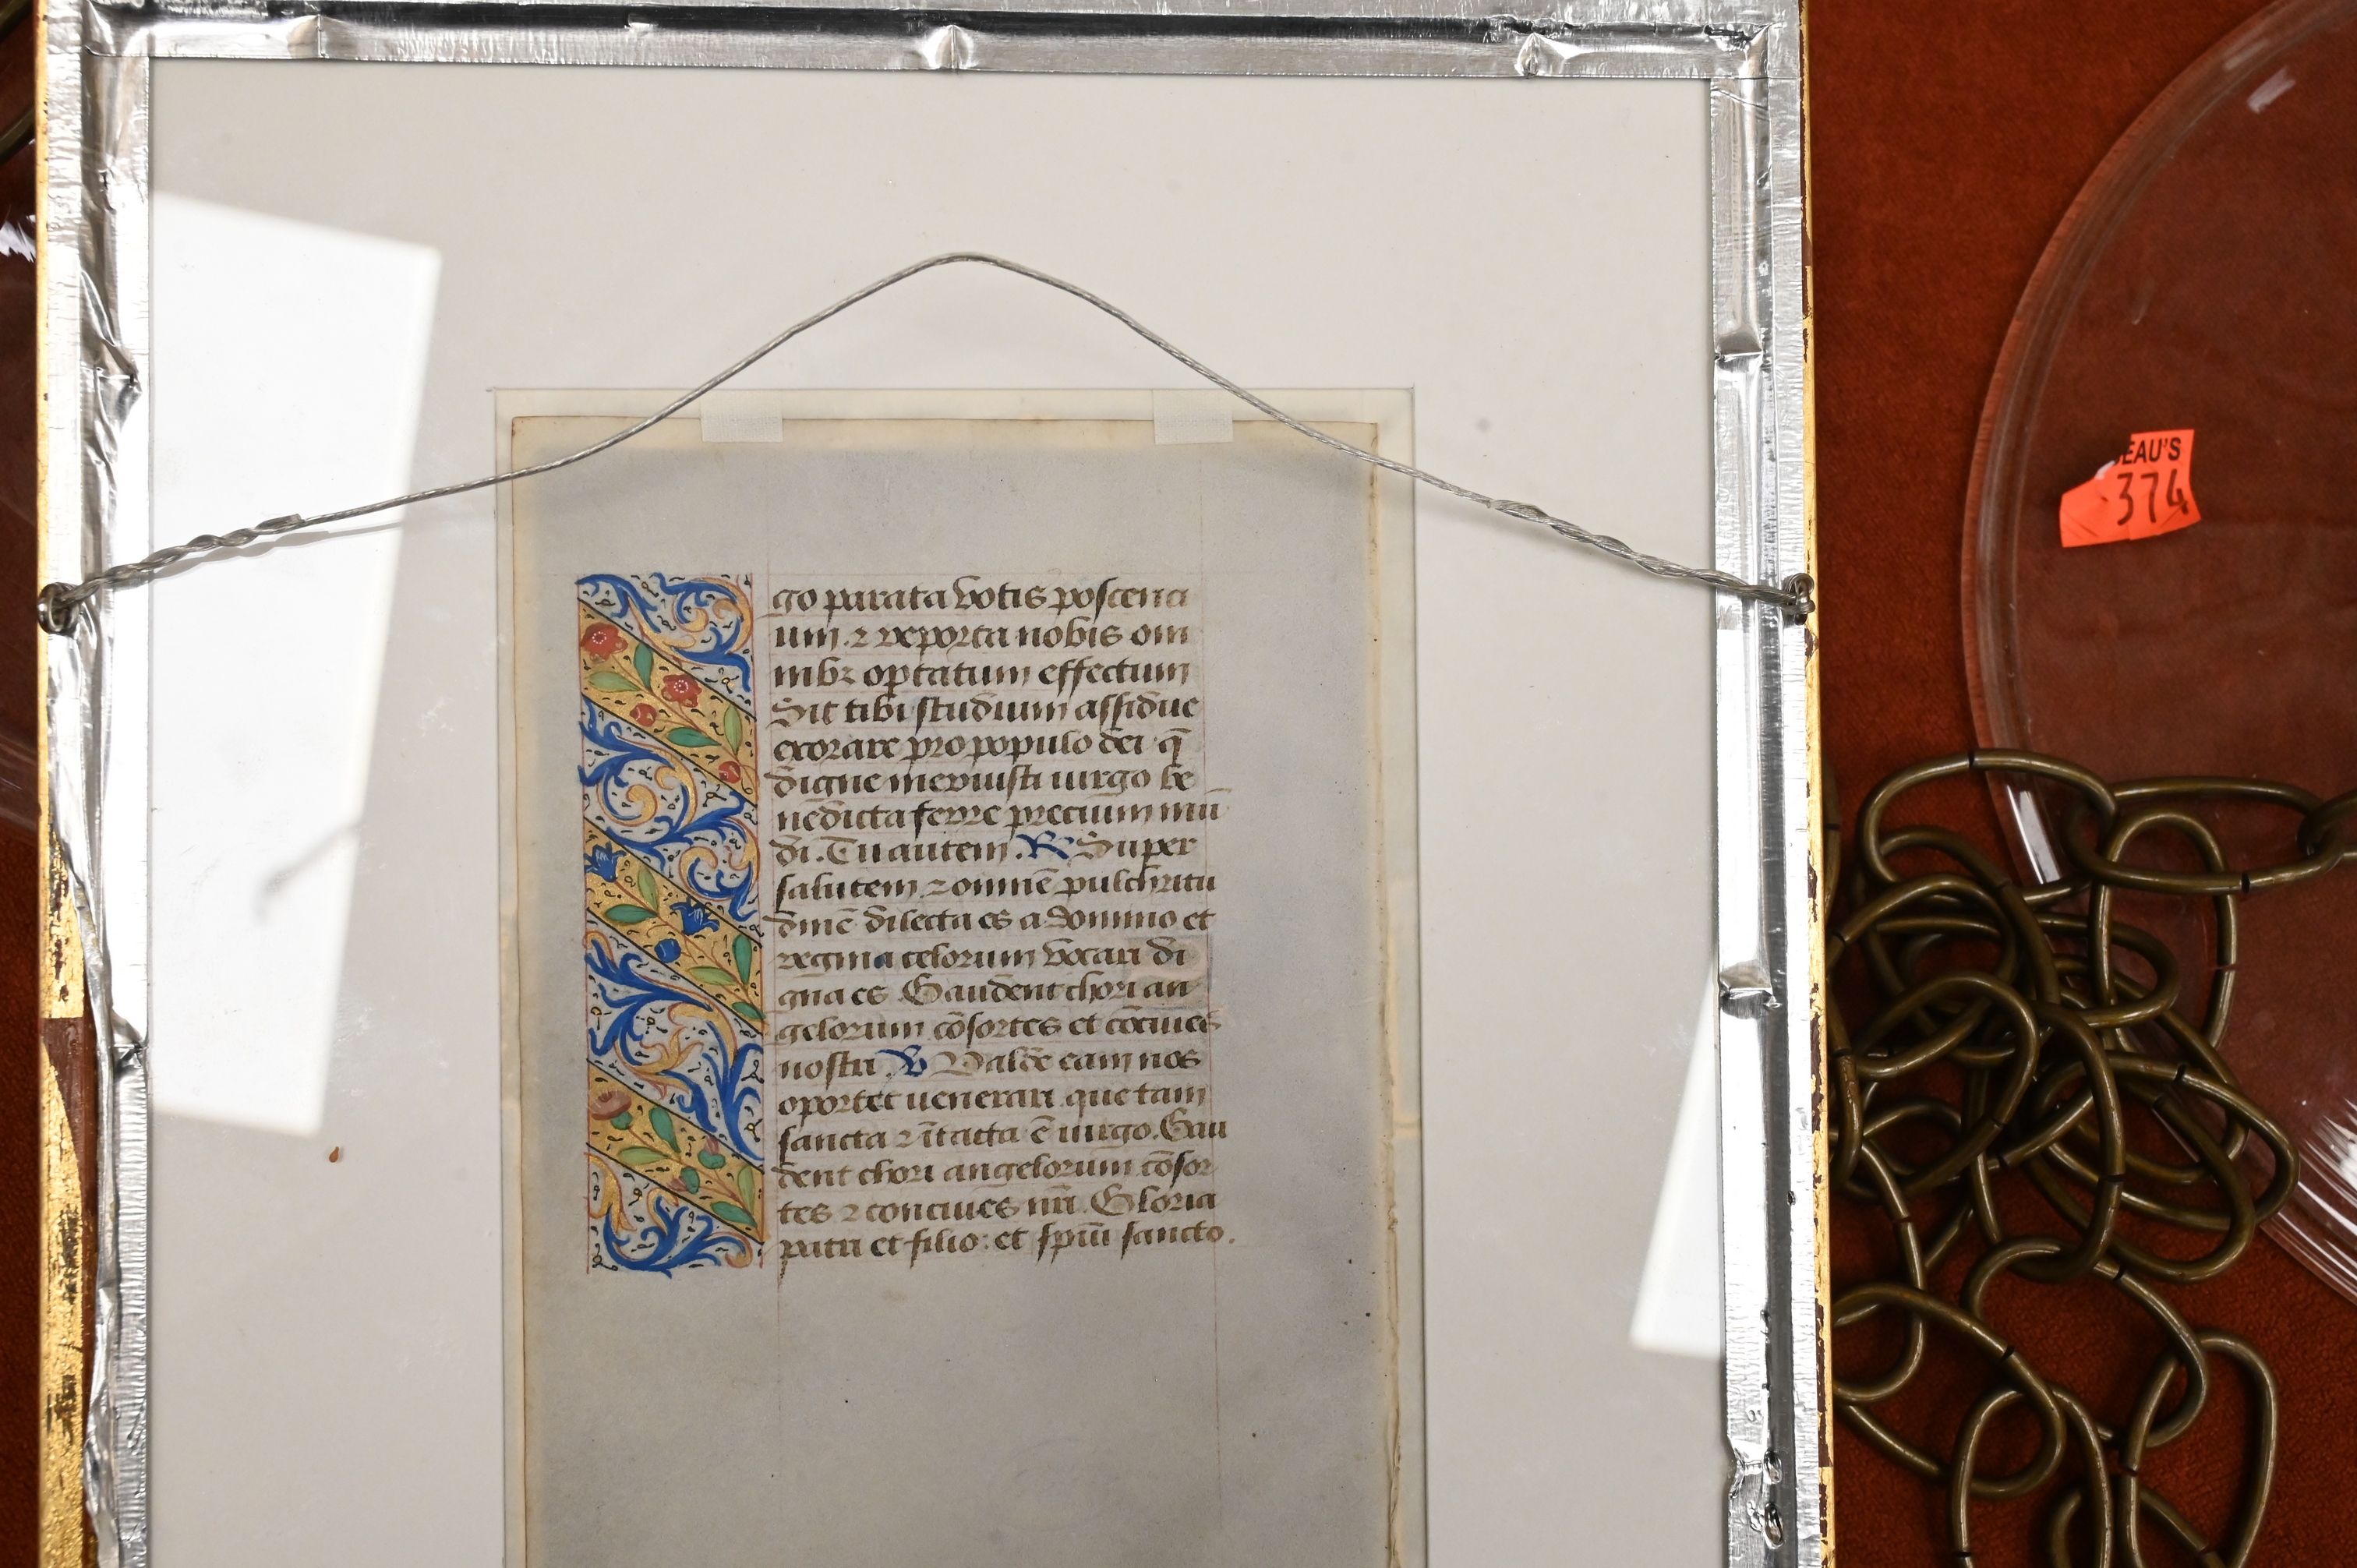 go parata votis poscenci
um. ⁊ reporta nobis om
nibꝫ optatum effectum
Sit tibi studium assidue
exorare pro populo dei q̃
digne meruisti uirgo be
nedicta ferre precium mū
di. Tu autem. R Super
salutem ⁊ omnē pulchritu
dinē dilecta es a domino et
regina celorum vocari di
gna es Gaudent chori an
gelorum cōsortes et cōciues
nostri. V Valde eam nos
oportet uenerari que tam
sancta ⁊ ītacta ē uirgo. Gau
dent chori angelorum cōsor
tes ⁊ conciues nr̄i. Gloria
patri et filio: et spūi sancto.
EAU'S
374